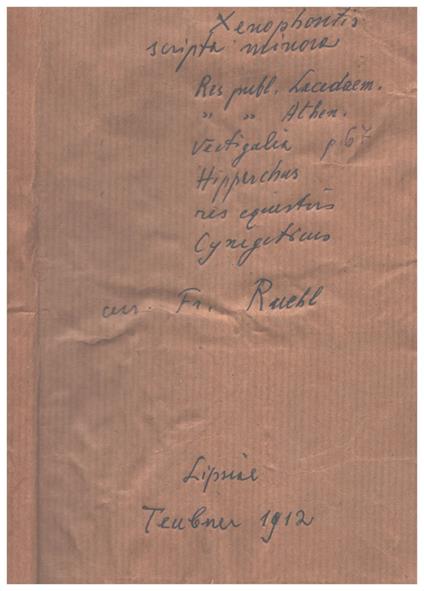 Xenophontis
scripta minora
Res publ. Lacedaem.
" " Athen.
Vectigalia p. 67
Hipparchus
res equestris
Cynegeticus
cur. Fr. Ruehl
Lipsiae
Teubner 1912